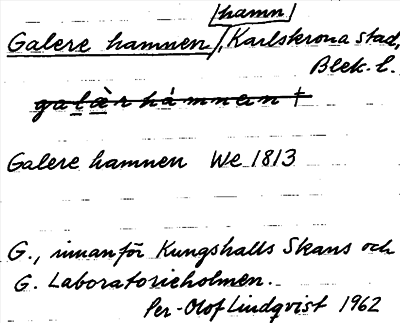 /hamn/
Galere hamnen/, Karlskrona stad,
Blek. l.
galärhámnan †
Galere hamnen We 1813
G., innanför Kungshalls Skans och
G. Laboratorieholmen.
Per-Olof Lindqvist 1962